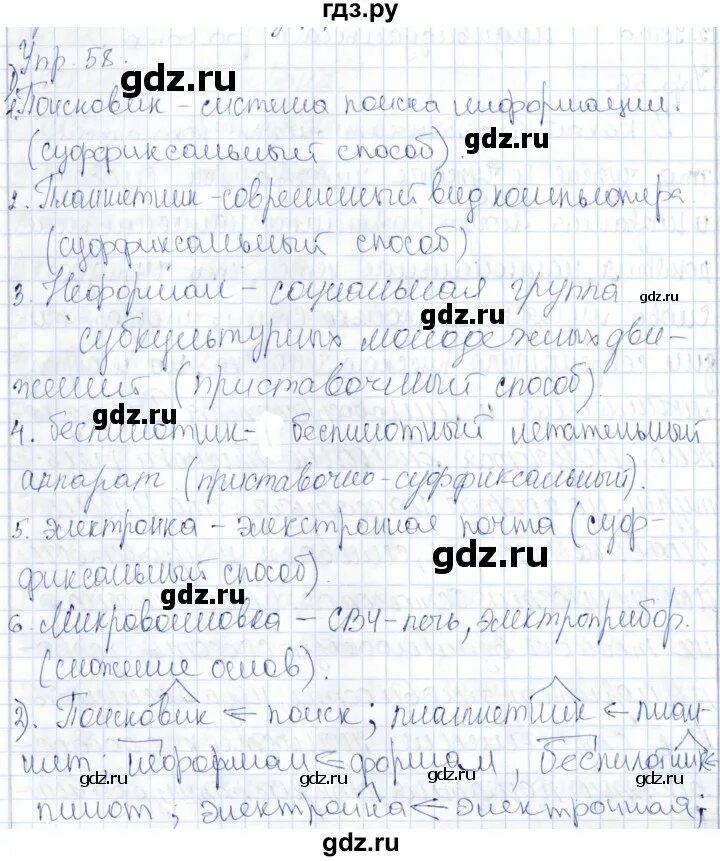 гдз.ру
Упр. 58.
1)
1. Поисковик – система поиска информации.
(суффиксальный способ).
2. Планшетник – современный вид компьютера
(суффиксальный способ)
3. Неформал – социальная группа
субкультурных молодежных дви-
жений (приставочный способ).
4. беспилотник – беспилотный летательный
аппарат (приставочно-суффиксальный).
5. электронка – элекстронная почта (суф-
фиксальный способ).
6. Микроволновка – СВЧ-печь, электроприбор.
(сложение основ).
2). Поисковик < поиск; планшетник < план-
шет; неформал < формал, беспилотник <
пилот; электронка < электронная;
gdz.ru
gdz.ru
gdz.ru
gdz.ru
gdz.ru
gdz.ru
gdz.ru
gdz.ru
gdz.ru
gdz.ru
gdz.ru
gdz.ru
gdz.ru
gdz.ru